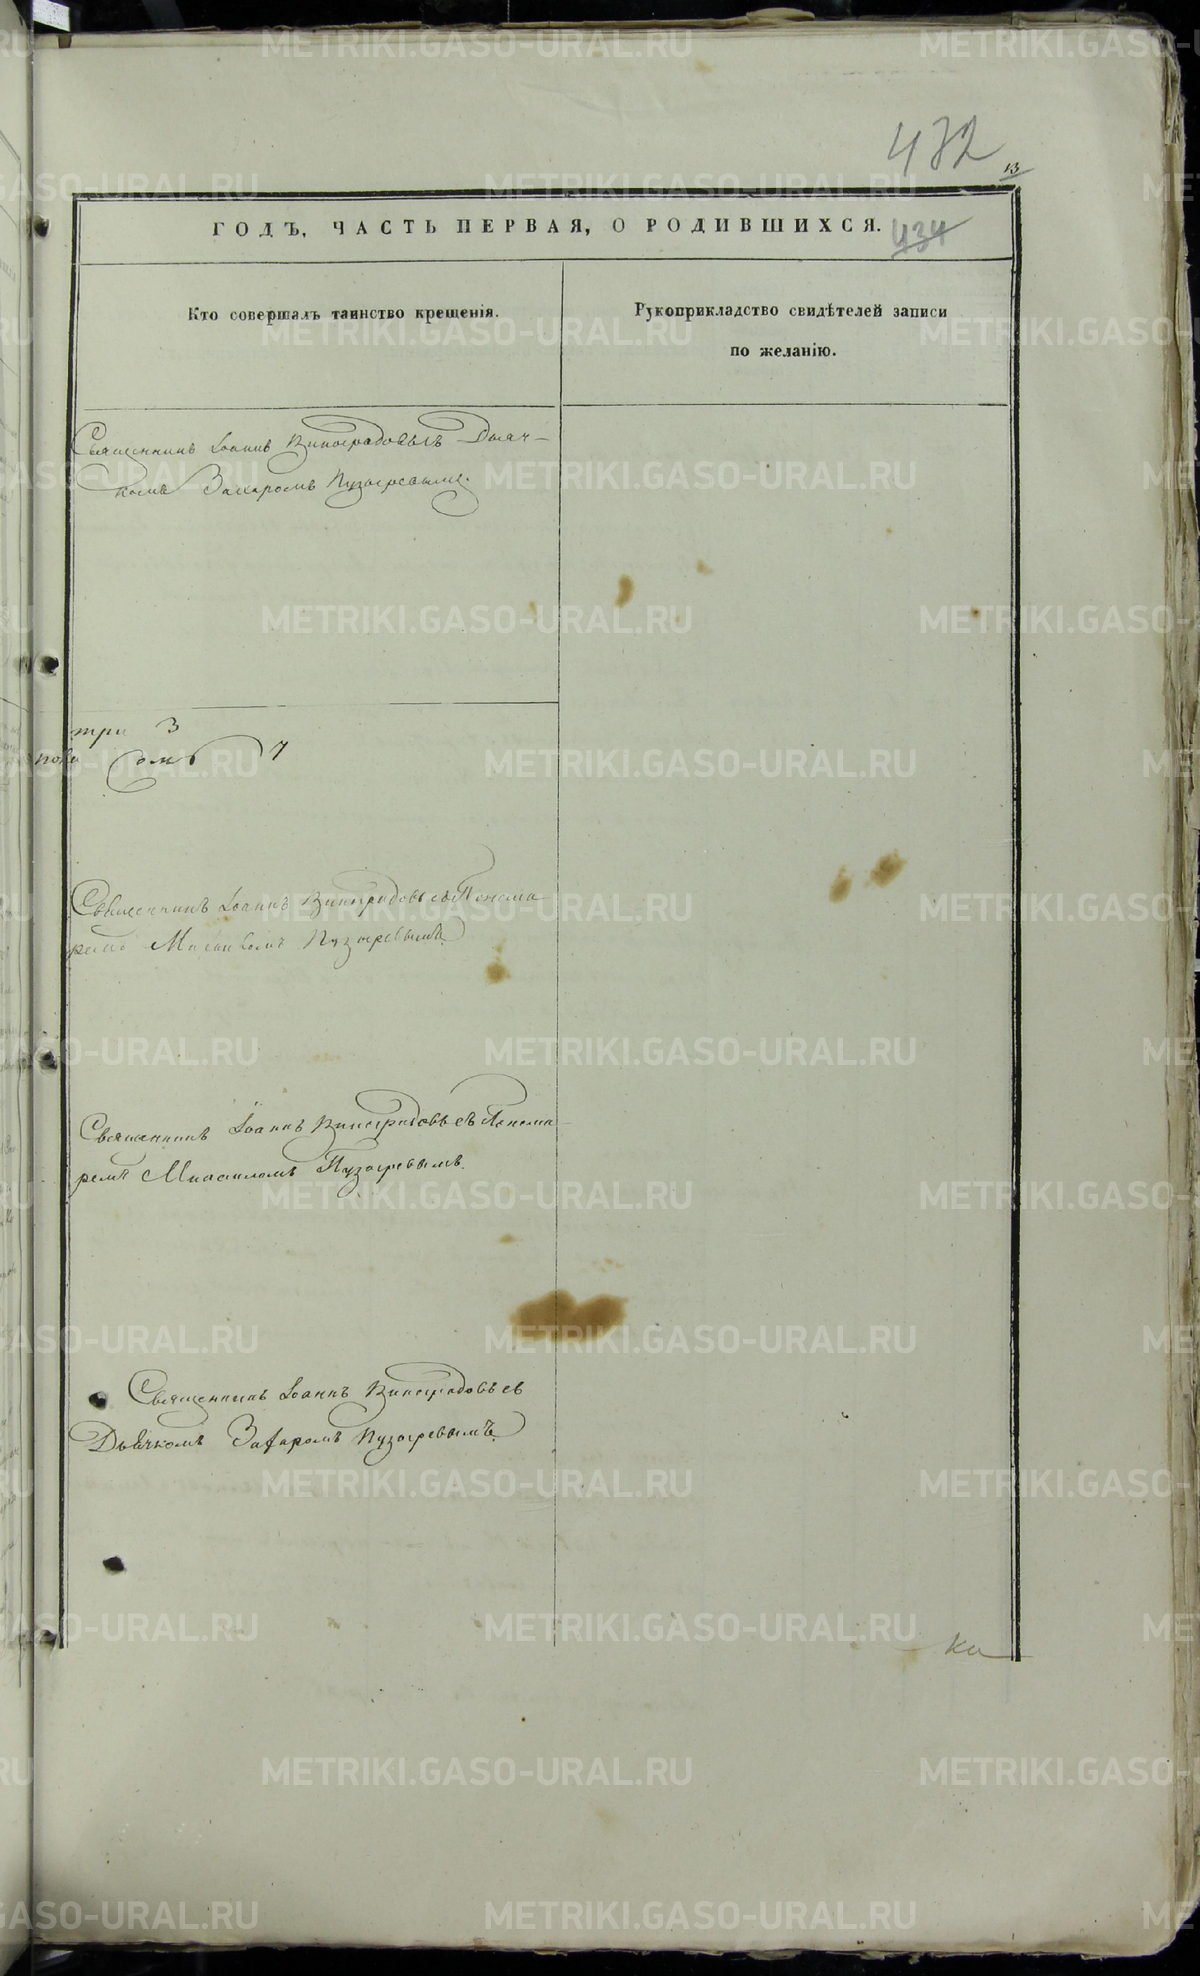 432
13
ГОДЪ, ЧАСТЬ ПЕРВАЯ, О РОДИВШИХСЯ.
434
Кто совершалъ таинство крещенія.
Рукоприкладство свидѣтелей записи
по желанію.
Священникъ Іоаннъ Виноградовъ съ Дьяч-
комъ Захаромъ Пузыревымъ.
три 3
семь 7
Священникъ Іоаннъ Виноградовъ съ Понома
ремъ Михаиломъ Пузыревымъ.
Священникъ Іоаннъ Виноградовъ съ Понома
ремъ Михаиломъ Пузыревымъ.
Священникъ Іоаннъ Виноградовъ съ
Дьячкомъ Захаромъ Пузыревымъ.
METRIKI.GASO-URAL.RU